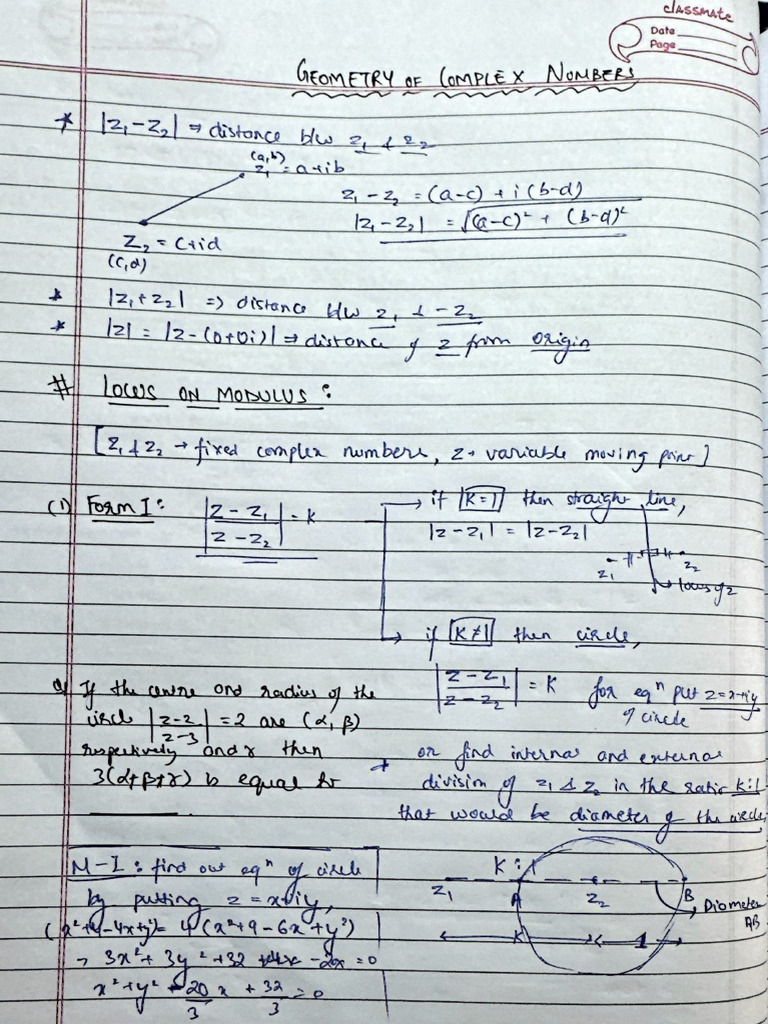 classmate
Date
Page
GEOMETRY OF COMPLEX NUMBERS
* |z₁-z₂| ⇒ distance b/w z₁ & z₂
(a,b)
z₁ = a+ib
z₁ - z₂ = (a-c) + i(b-d)
|z₁-z₂| = √(a-c)² + (b-d)²
z₂ = c+id
(c,d)
* |z₁+z₂| => distance b/w z₁ & -z₂
* |z| = |z-(0+0i)| ⇒ distance of z from origin
# LOCUS ON MODULUS :
[z₁ & z₂ → fixed complex numbers, z → variable moving point]
(1) FORM I : |z-z₁ / z-z₂| = K
→ if |K=1| then straight line,
|z-z₁| = |z-z₂|
z₁ z₂
→ locus of z
→ if |K≠1| then circle,
|z-z₁ / z-z₂| = K for eqⁿ put z=x+iy
of circle
Q If the centre and radius of the
circle |z-2 / z-3| = 2 are (α, β)
respectively and γ then
3(α+β+γ) is equal to
* or find internal and external
division of z₁ & z₂ in the ratio K:1
that would be diameter of the circle
M-I : find out eqⁿ of circle
by putting z = x+iy,
(x²+4-4x+y²) = 4(x²+9-6x+y²)
→ 3x² + 3y² + 32 - 20x = 0
x² + y² - 20/3 x + 32/3 = 0
K : 1
z₁ A z₂ B
→ Diameter
AB
K 1